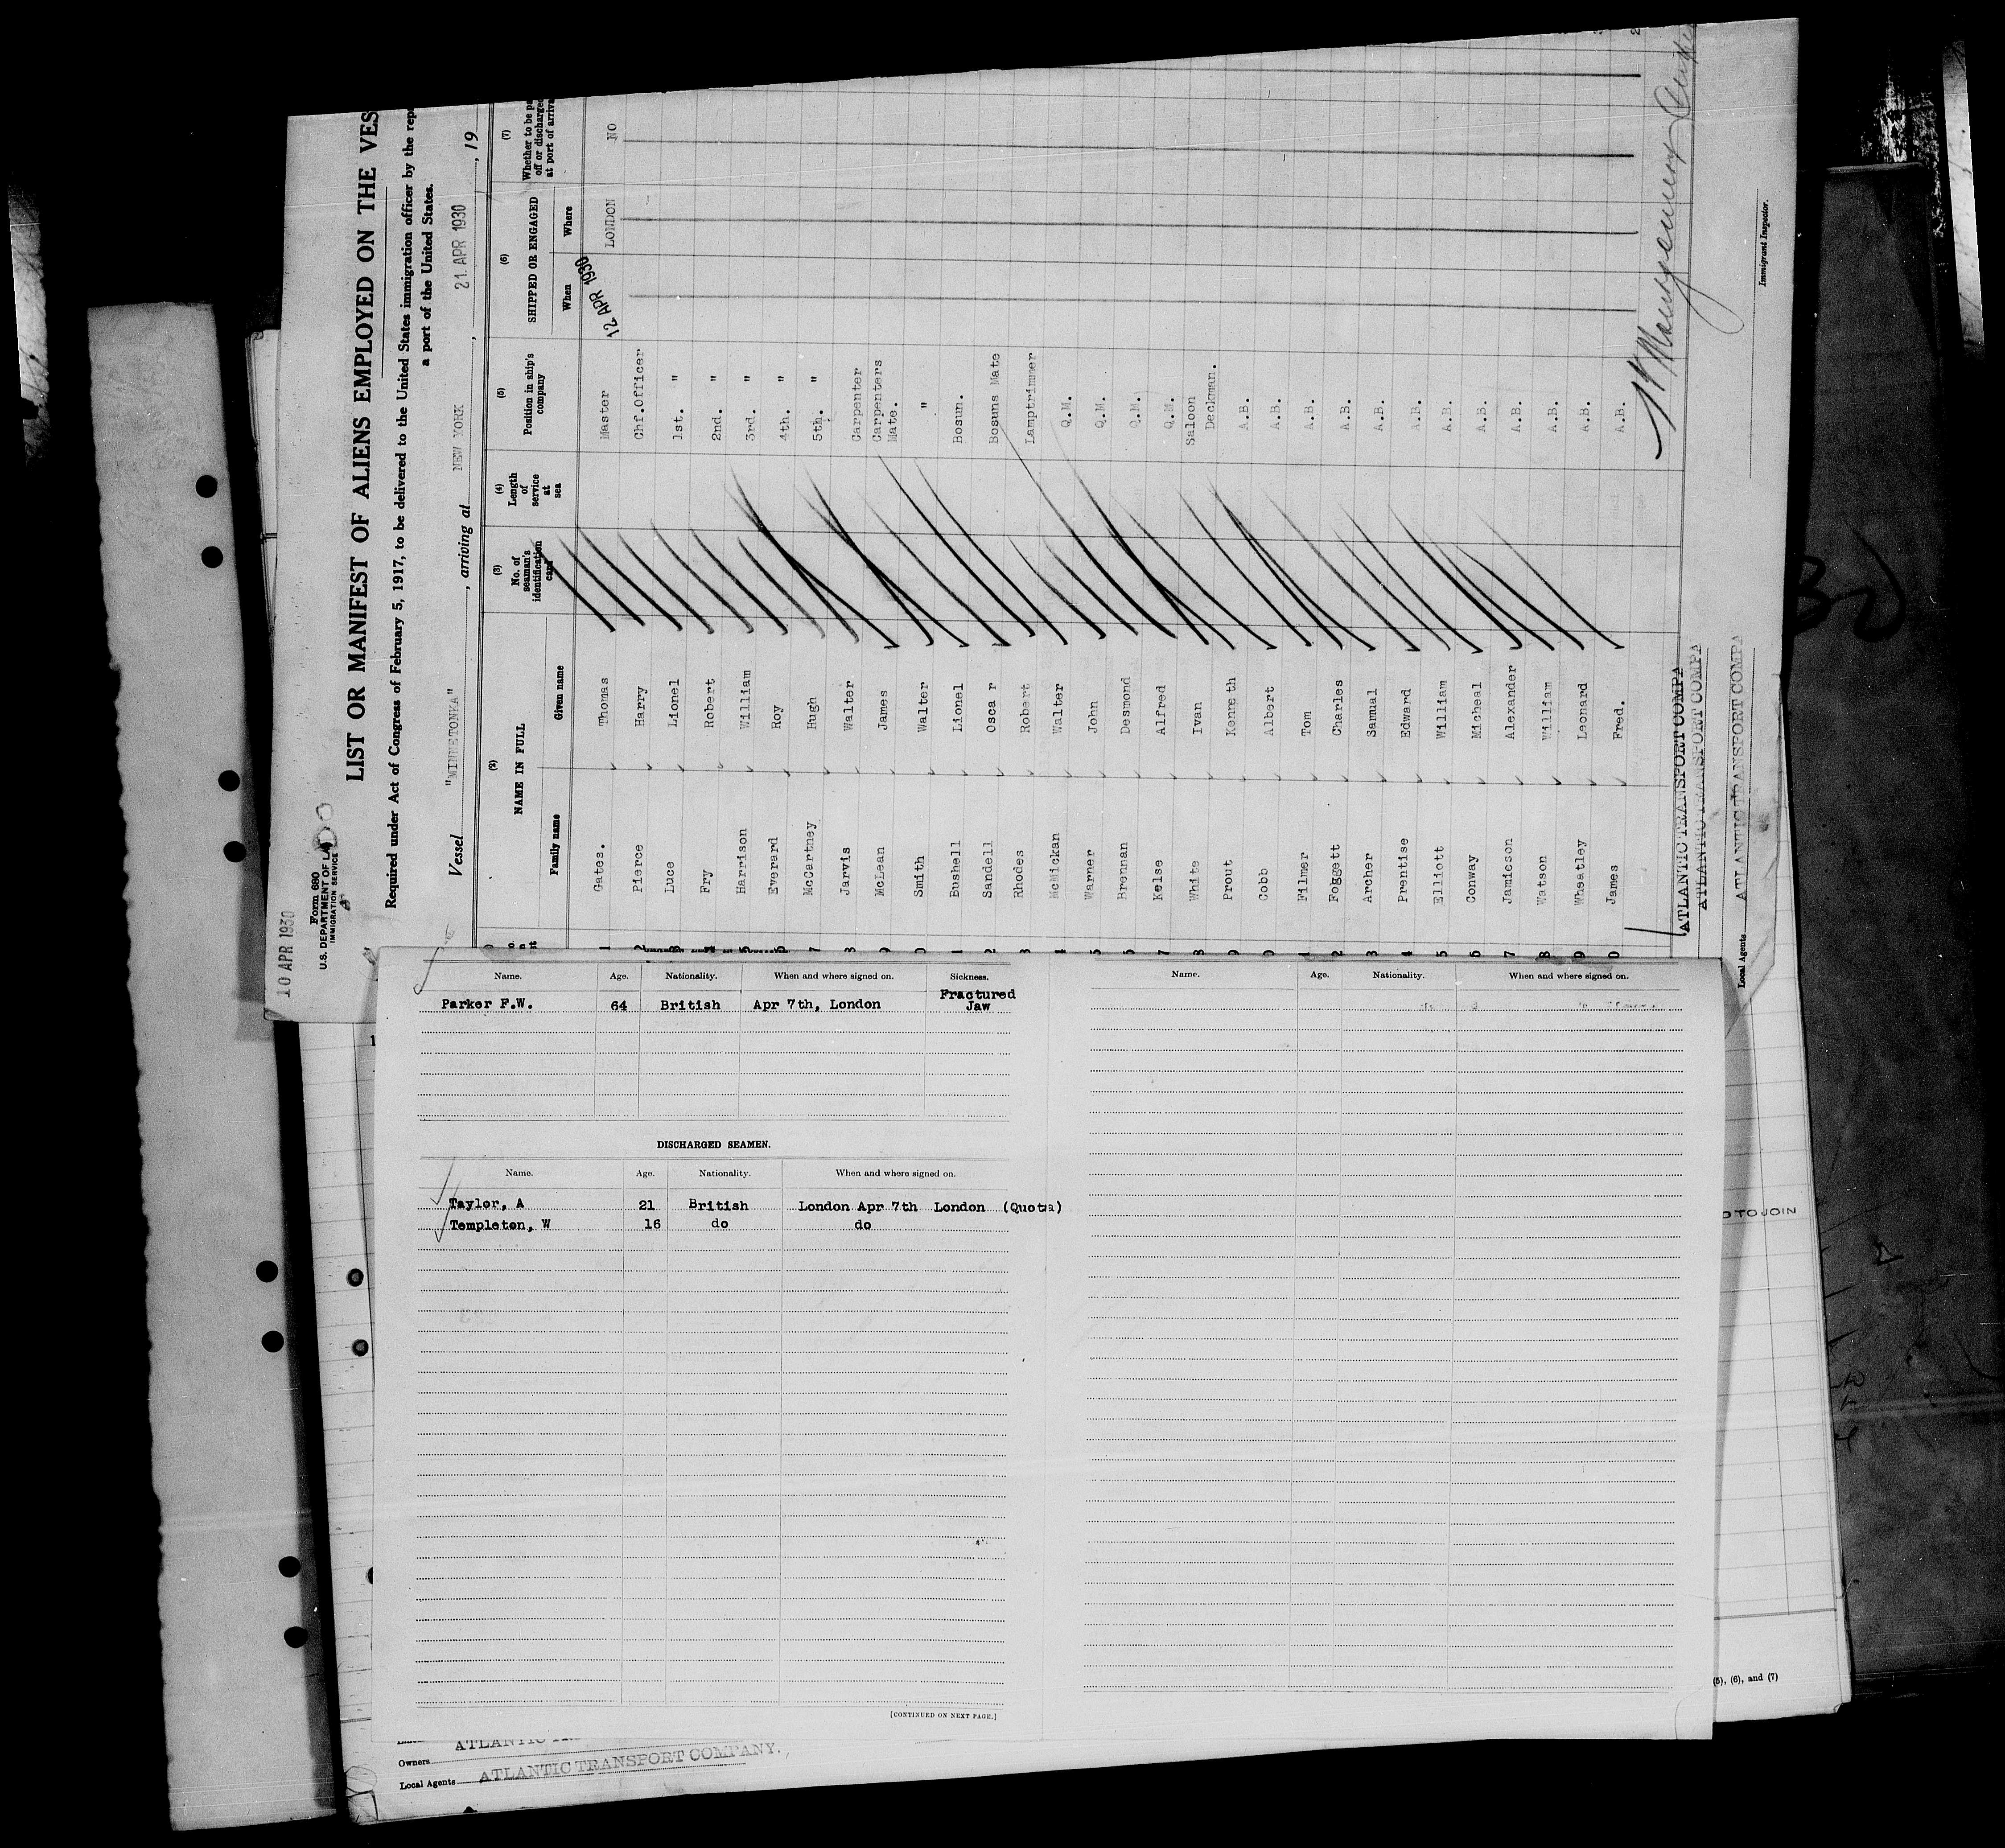 10 APR 1930
Form 680
U.S. DEPARTMENT OF LA
IMMIGRATION SERVICE
LIST OR MANIFEST OF ALIENS EMPLOYED ON THE VES
Required under Act of Congress of February 5, 1917, to be delivered to the United States immigration officer by the rep
a port of the United States.
Vessel "MINNETONKA", arriving at NEW YORK, 21 APR 1930, 19
(2) (3) (4) (5) (6) (7)
NAME IN FULL No. of seaman's identification card Length of service at sea Position in ship's company SHIPPED OR ENGAGED Whether to be pa off or discharged at port of arriva
Family name Given name When Where
1 Gates. Thomas Master 12 APR 1930 LONDON NO
2 Pierce Harry Chf.Officer
3 Luce Lionel 1st. "
4 Fry Robert 2nd. "
5 Harrison William 3rd. "
6 Everard Roy 4th. "
7 McCartney Hugh 5th. "
8 Jarvis Walter Carpenter
9 McLean James Carpenters Mate.
0 Smith Walter "
1 Bushell Lionel Bosun.
2 Sandell Osca r Bosuns Mate
3 Rhodes Robert Lamptrimmer
4 McMickan Walter Q.M.
5 Warner John Q.M.
5 Brennan Desmond Q.M.
7 Kelse Alfred Q.M.
8 White Ivan Saloon Deckman.
9 Prout Kenneth A.B.
0 Cobb Albert A.B.
1 Filmer Tom A.B.
2 Foggett Charles A.B.
3 Archer Samual A.B.
4 Prentise Edward A.B.
5 Elliott William A.B.
6 Conway Micheal A.B.
7 Jamieson Alexander A.B.
8 Watson William A.B.
9 Wheatley Leonard A.B.
0 James Fred. A.B.
ATLANTIC TRANSPORT COMPA
ATLANTIC TRANSPORT COMPA
Local Agents ATLANTIC TRANSPORT COMPA
Immigrant Inspector.
Name. Age. Nationality. When and where signed on. Sickness.
Parker F.W. 64 British Apr 7th, London Fractured Jaw
DISCHARGED SEAMEN.
Name. Age. Nationality. When and where signed on.
Taylor, A 21 British London Apr 7th London (Quota)
Templeton, W 16 do do
[CONTINUED ON NEXT PAGE.]
Name. Age. Nationality. When and where signed on.
D TO JOIN
(5), (6), and (7)
Owners
ATLANTIC
Local Agents ATLANTIC TRANSPORT COMPANY.